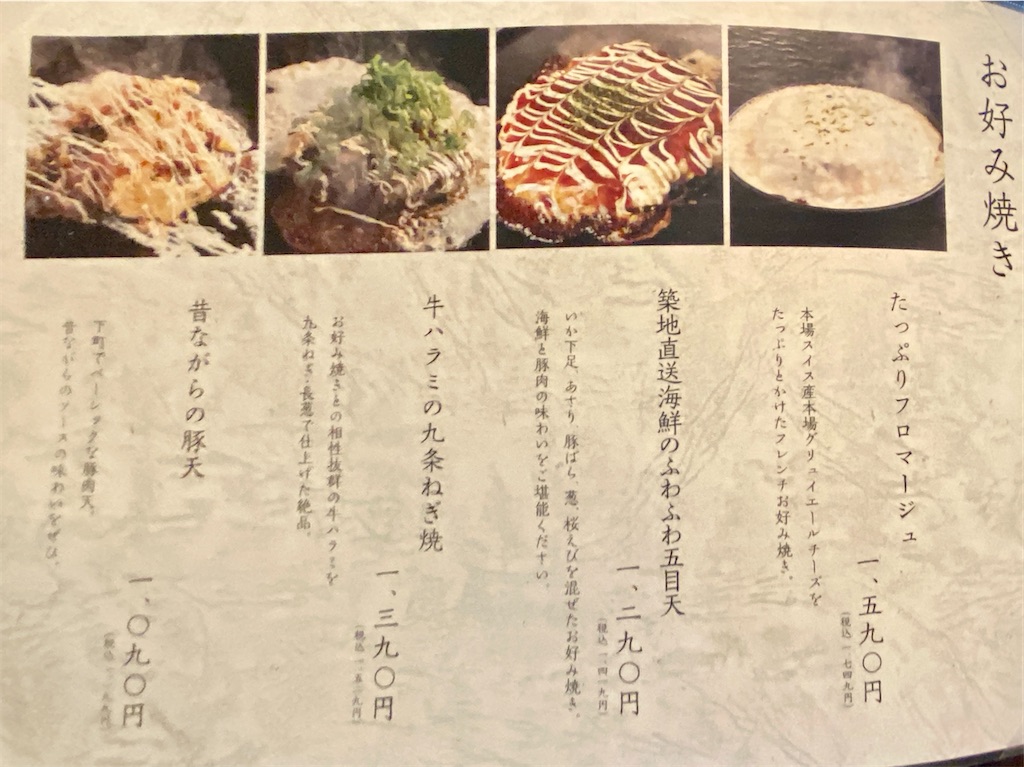 お好み焼き
たっぷりフロマージュ
本場スイス産本場グリュイエールチーズを
たっぷりとかけたフレンチお好み焼き。
一、五九〇円
(税込 一、七四九円)
築地直送海鮮のふわふわ五目天
いか下足、あさり、豚ばら、葱、桜えびを混ぜたお好み焼き。
海鮮と豚肉の味わいをご堪能ください。
一、二九〇円
(税込 一、四一九円)
牛ハラミの九条ねぎ焼
お好み焼きとの相性抜群の牛ハラミを
九条ねぎ・長葱で仕上げた絶品。
一、三九〇円
(税込 一、五二九円)
昔ながらの豚天
下町でベーシックな豚肉天。
昔ながらのソースの味わいをぜひ。
一、〇九〇円
(税込